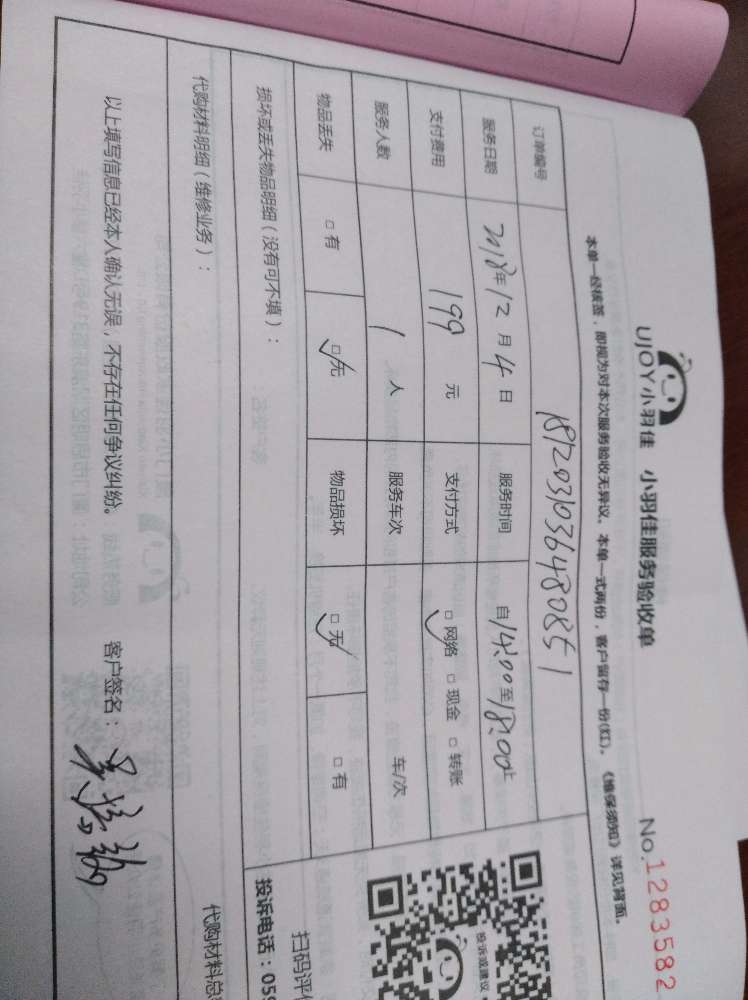 UJOY小羽佳 小羽佳服务验收单 No.1283582
本单一经核签，即视为对本次服务验收无异议。本单一式两份，客户留存一份(红)。《维保须知》详见背面。
订单编号 1812031036480851
服务日期 2018年12月4日 服务时间 自14:00至18:00止
支付费用 199元 支付方式 □网络 □现金 □转账
服务人数 1人 服务车次 车/次
物品丢失 □有 □无 物品损坏 □无 □有
投诉或建议
扫码评价
损坏或丢失物品明细（没有可不填）： 投诉电话：059
代购材料明细（维修业务）： 代购材料总
以上填写信息已经本人确认无误，不存在任何争议纠纷。 客户签名：